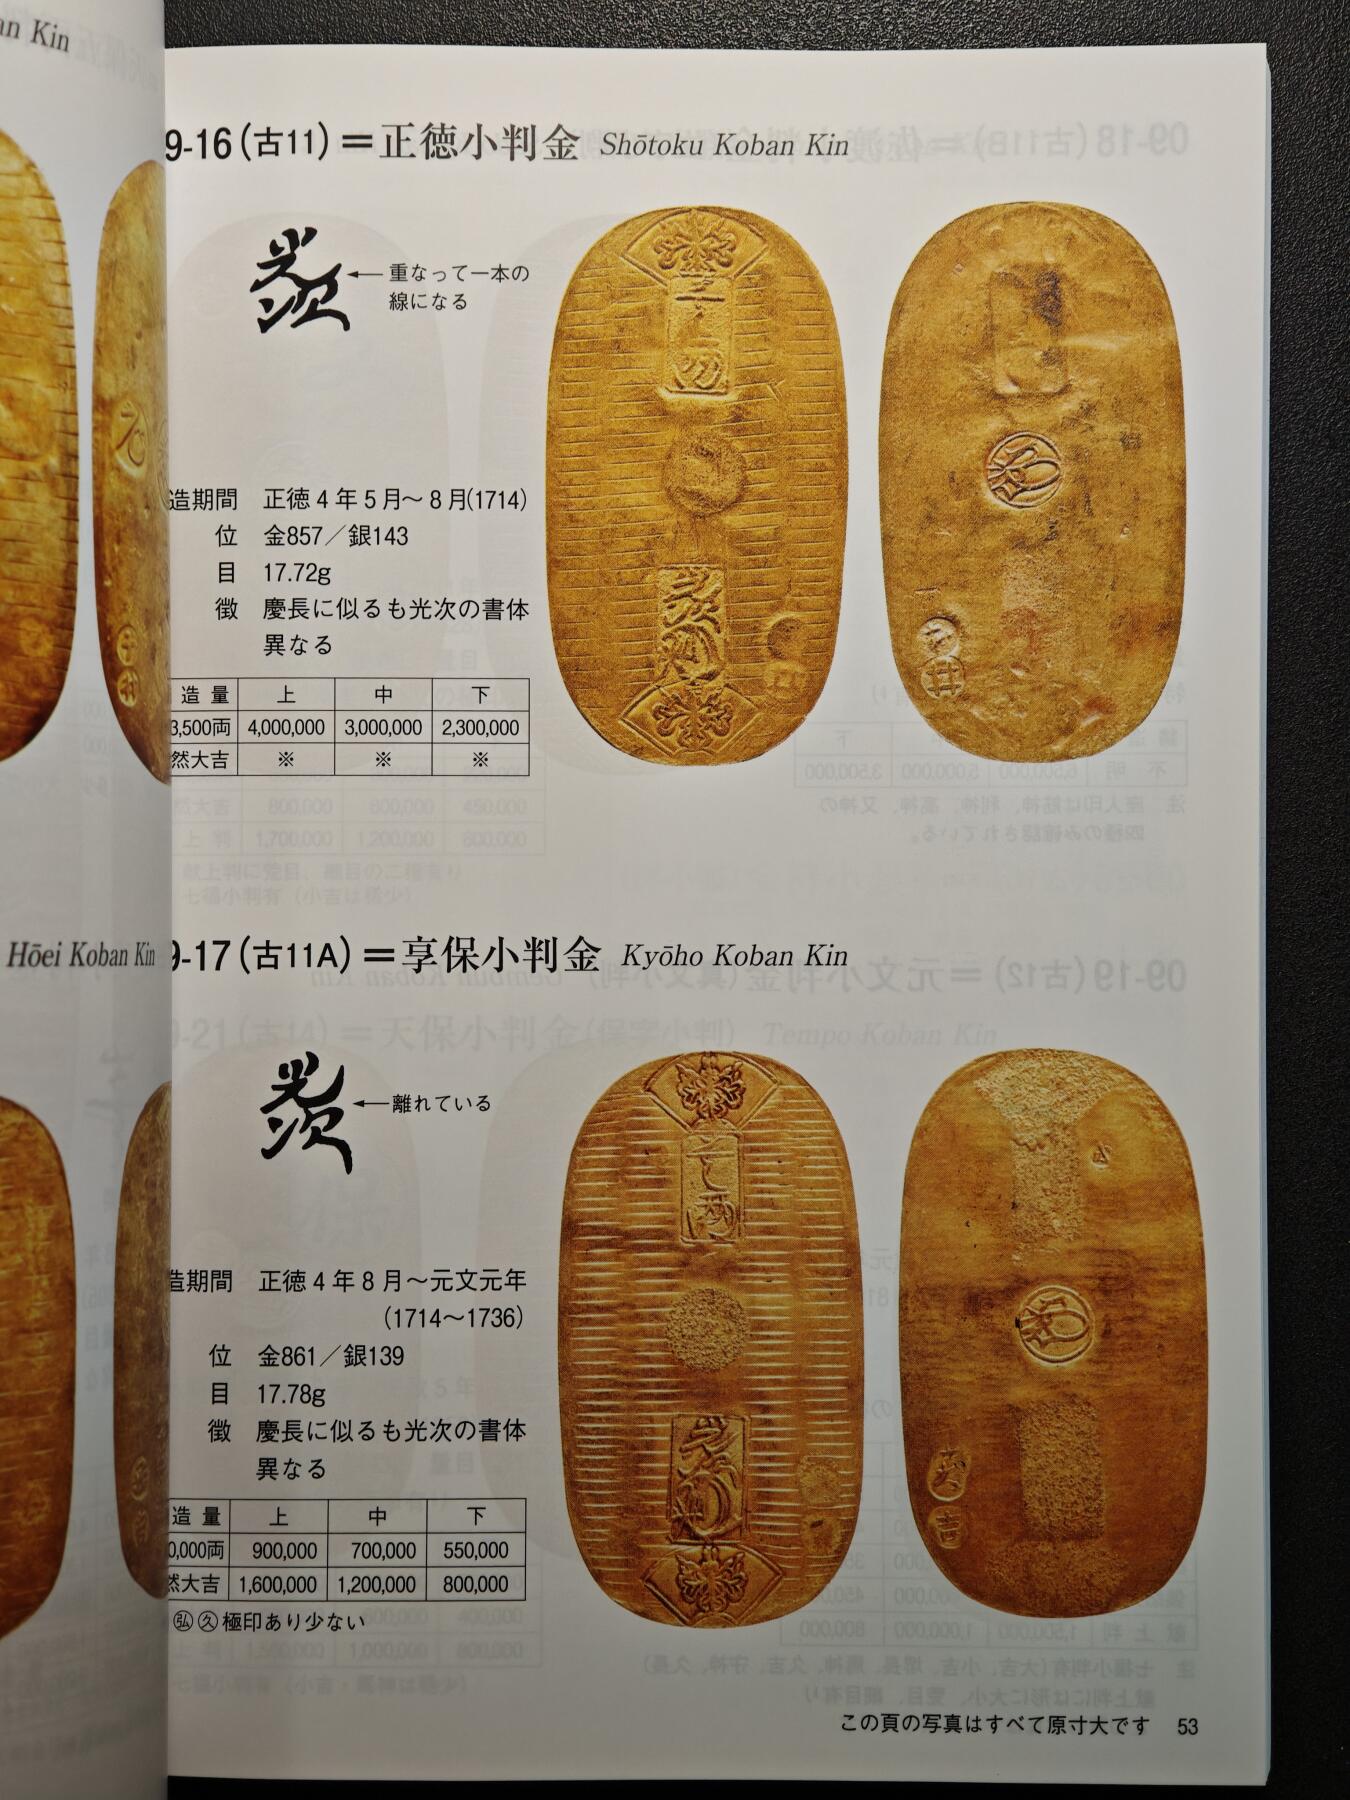 an Kin
9-16（古11）＝正徳小判金 Shōtoku Koban Kin
光次
←重なって一本の
線になる
造期間 正徳4年5月～8月(1714)
位 金857／銀143
目 17.72g
徴 慶長に似るも光次の書体
異なる
造量 上 中 下
3,500両 4,000,000 3,000,000 2,300,000
然大吉 ※ ※ ※
Hōei Koban Kin
9-17（古11A）＝享保小判金 Kyōho Koban Kin
光次
←離れている
造期間 正徳4年8月～元文元年
(1714～1736)
位 金861／銀139
目 17.78g
徴 慶長に似るも光次の書体
異なる
造量 上 中 下
0,000両 900,000 700,000 550,000
然大吉 1,600,000 1,200,000 800,000
㊊弘㊊久極印あり少ない
この頁の写真はすべて原寸大です 53